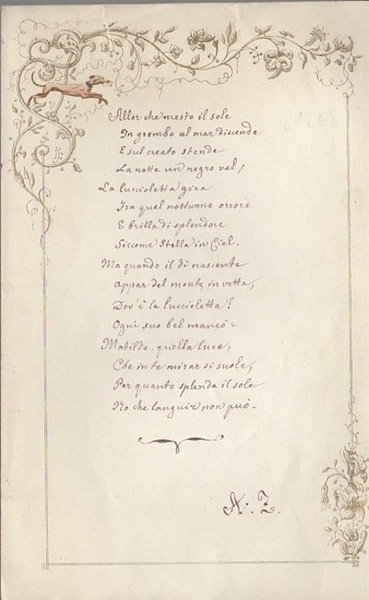 Allor che mesto il sole
In grembo al mar discende
E sul creato stende
La notte un negro vel;
La luccioletta gira
Fra quel notturno orrore
E brilla di splendore
Siccome Stella in Ciel.
Ma quando il dì nascente
Appar del monte in vetta,
Dov'è la luccioletta?
Ogni suo bel mancò =
Matilda, quella luce,
Che in te mirar si suole,
Per quanto splenda il sole
No che languir non può.
A: Z.